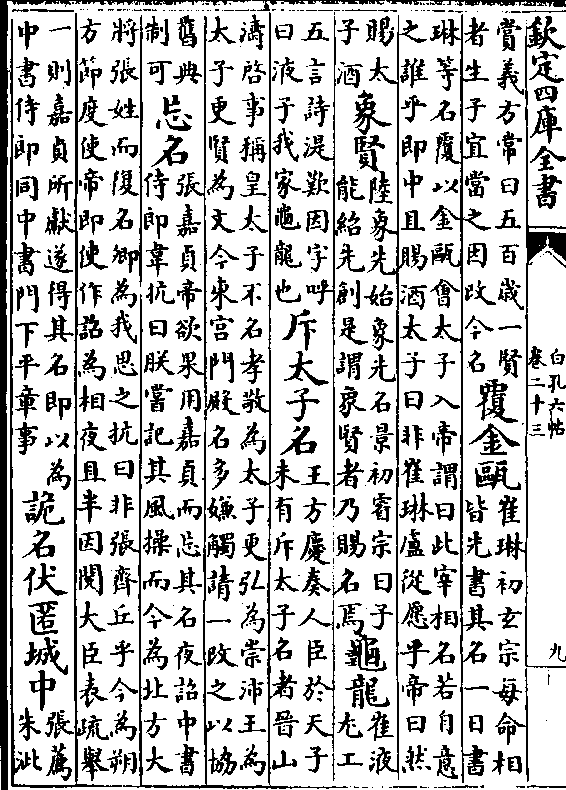 欽定四庫全書
白孔六帖
卷二十三
九
賞義方常曰五百歲一賢
者生子宜當之因改今名
覆金甌
崔琳初玄宗每命相
皆先書其名一日書
琳等名覆以金甌會太子入帝謂曰此宰相名若自意
之誰乎即中且賜酒太子曰非崔琳盧從愿乎帝曰然
賜太
子酒
象賢
陸象先始象先名景初睿宗曰子
能紹先創是謂象賢者乃賜名焉
龜龍
崔液
尤工
五言詩湜歎因字呼
曰液子我家龜龍也
斥太子名
王方慶奏人臣於天子
未有斥太子名者晉山
濤啓事稱皇太子不名孝敬為太子更弘為崇沛王為
太子更賢為文今東宫門殿名多嫌觸請一改之以協
舊典
制可
忘名
張嘉貞帝欲果用嘉貞而忘其名夜詔中書
侍郎韋抗曰朕嘗記其風操而今為北方大
將張姓而復名卿為我思之抗曰非張齊丘乎今為朔
方節度使帝即使作詔為相夜且半因閱大臣表疏舉
一則嘉貞所獻遂得其名即以為
中書侍郎同中書門下平章事
詭名伏匿城中
張薦
朱泚